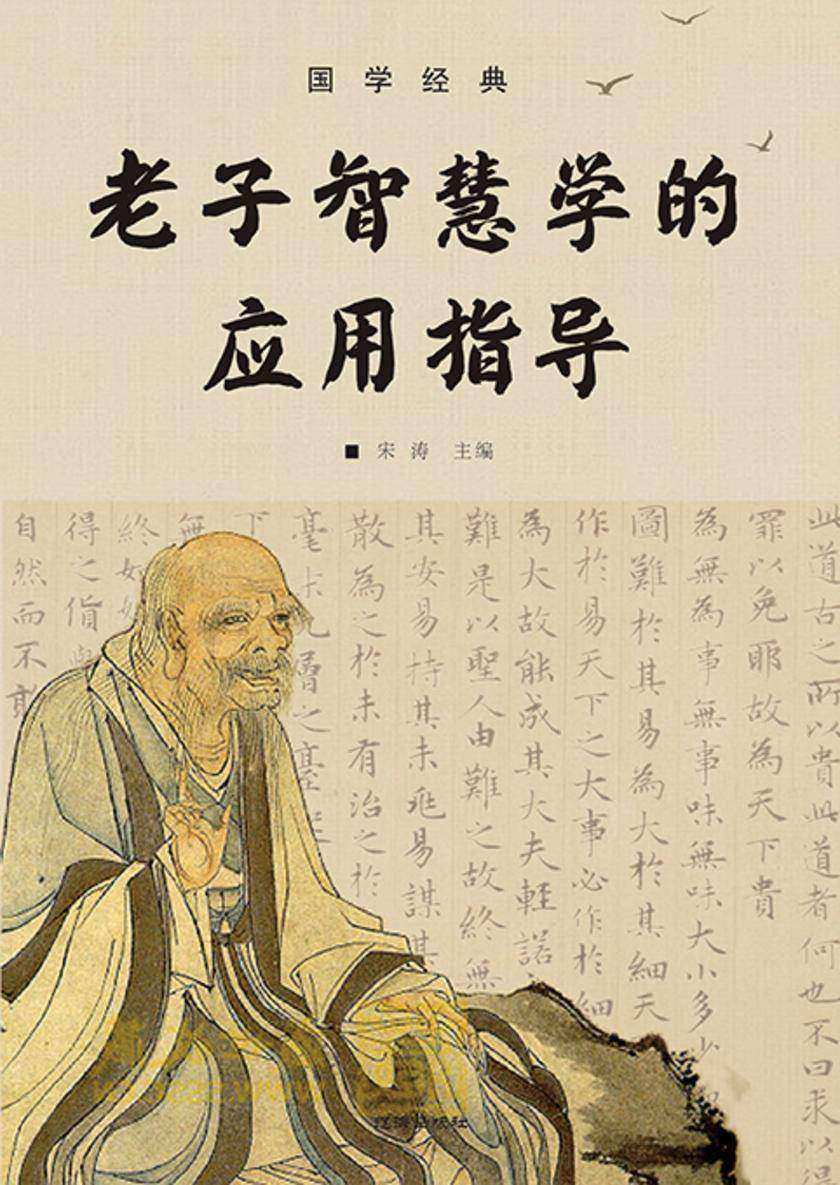 国学经典
老子智慧学的
应用指导
■ 宋涛 主编
此道古之所以貴此道者何也不曰求以得
罪以免耶故為天下貴
為無為事無事味無味大小多少
圖難於其易為大於其細天
作於易天下之大事必作於細
為大故能成其大夫輕諾
難是以聖人由難之故終無
其安易持其未兆易謀其
散為之於未有治之於
毫末九層之臺
下
無
終如始
得之偝
自然而不敢
辽海出版社